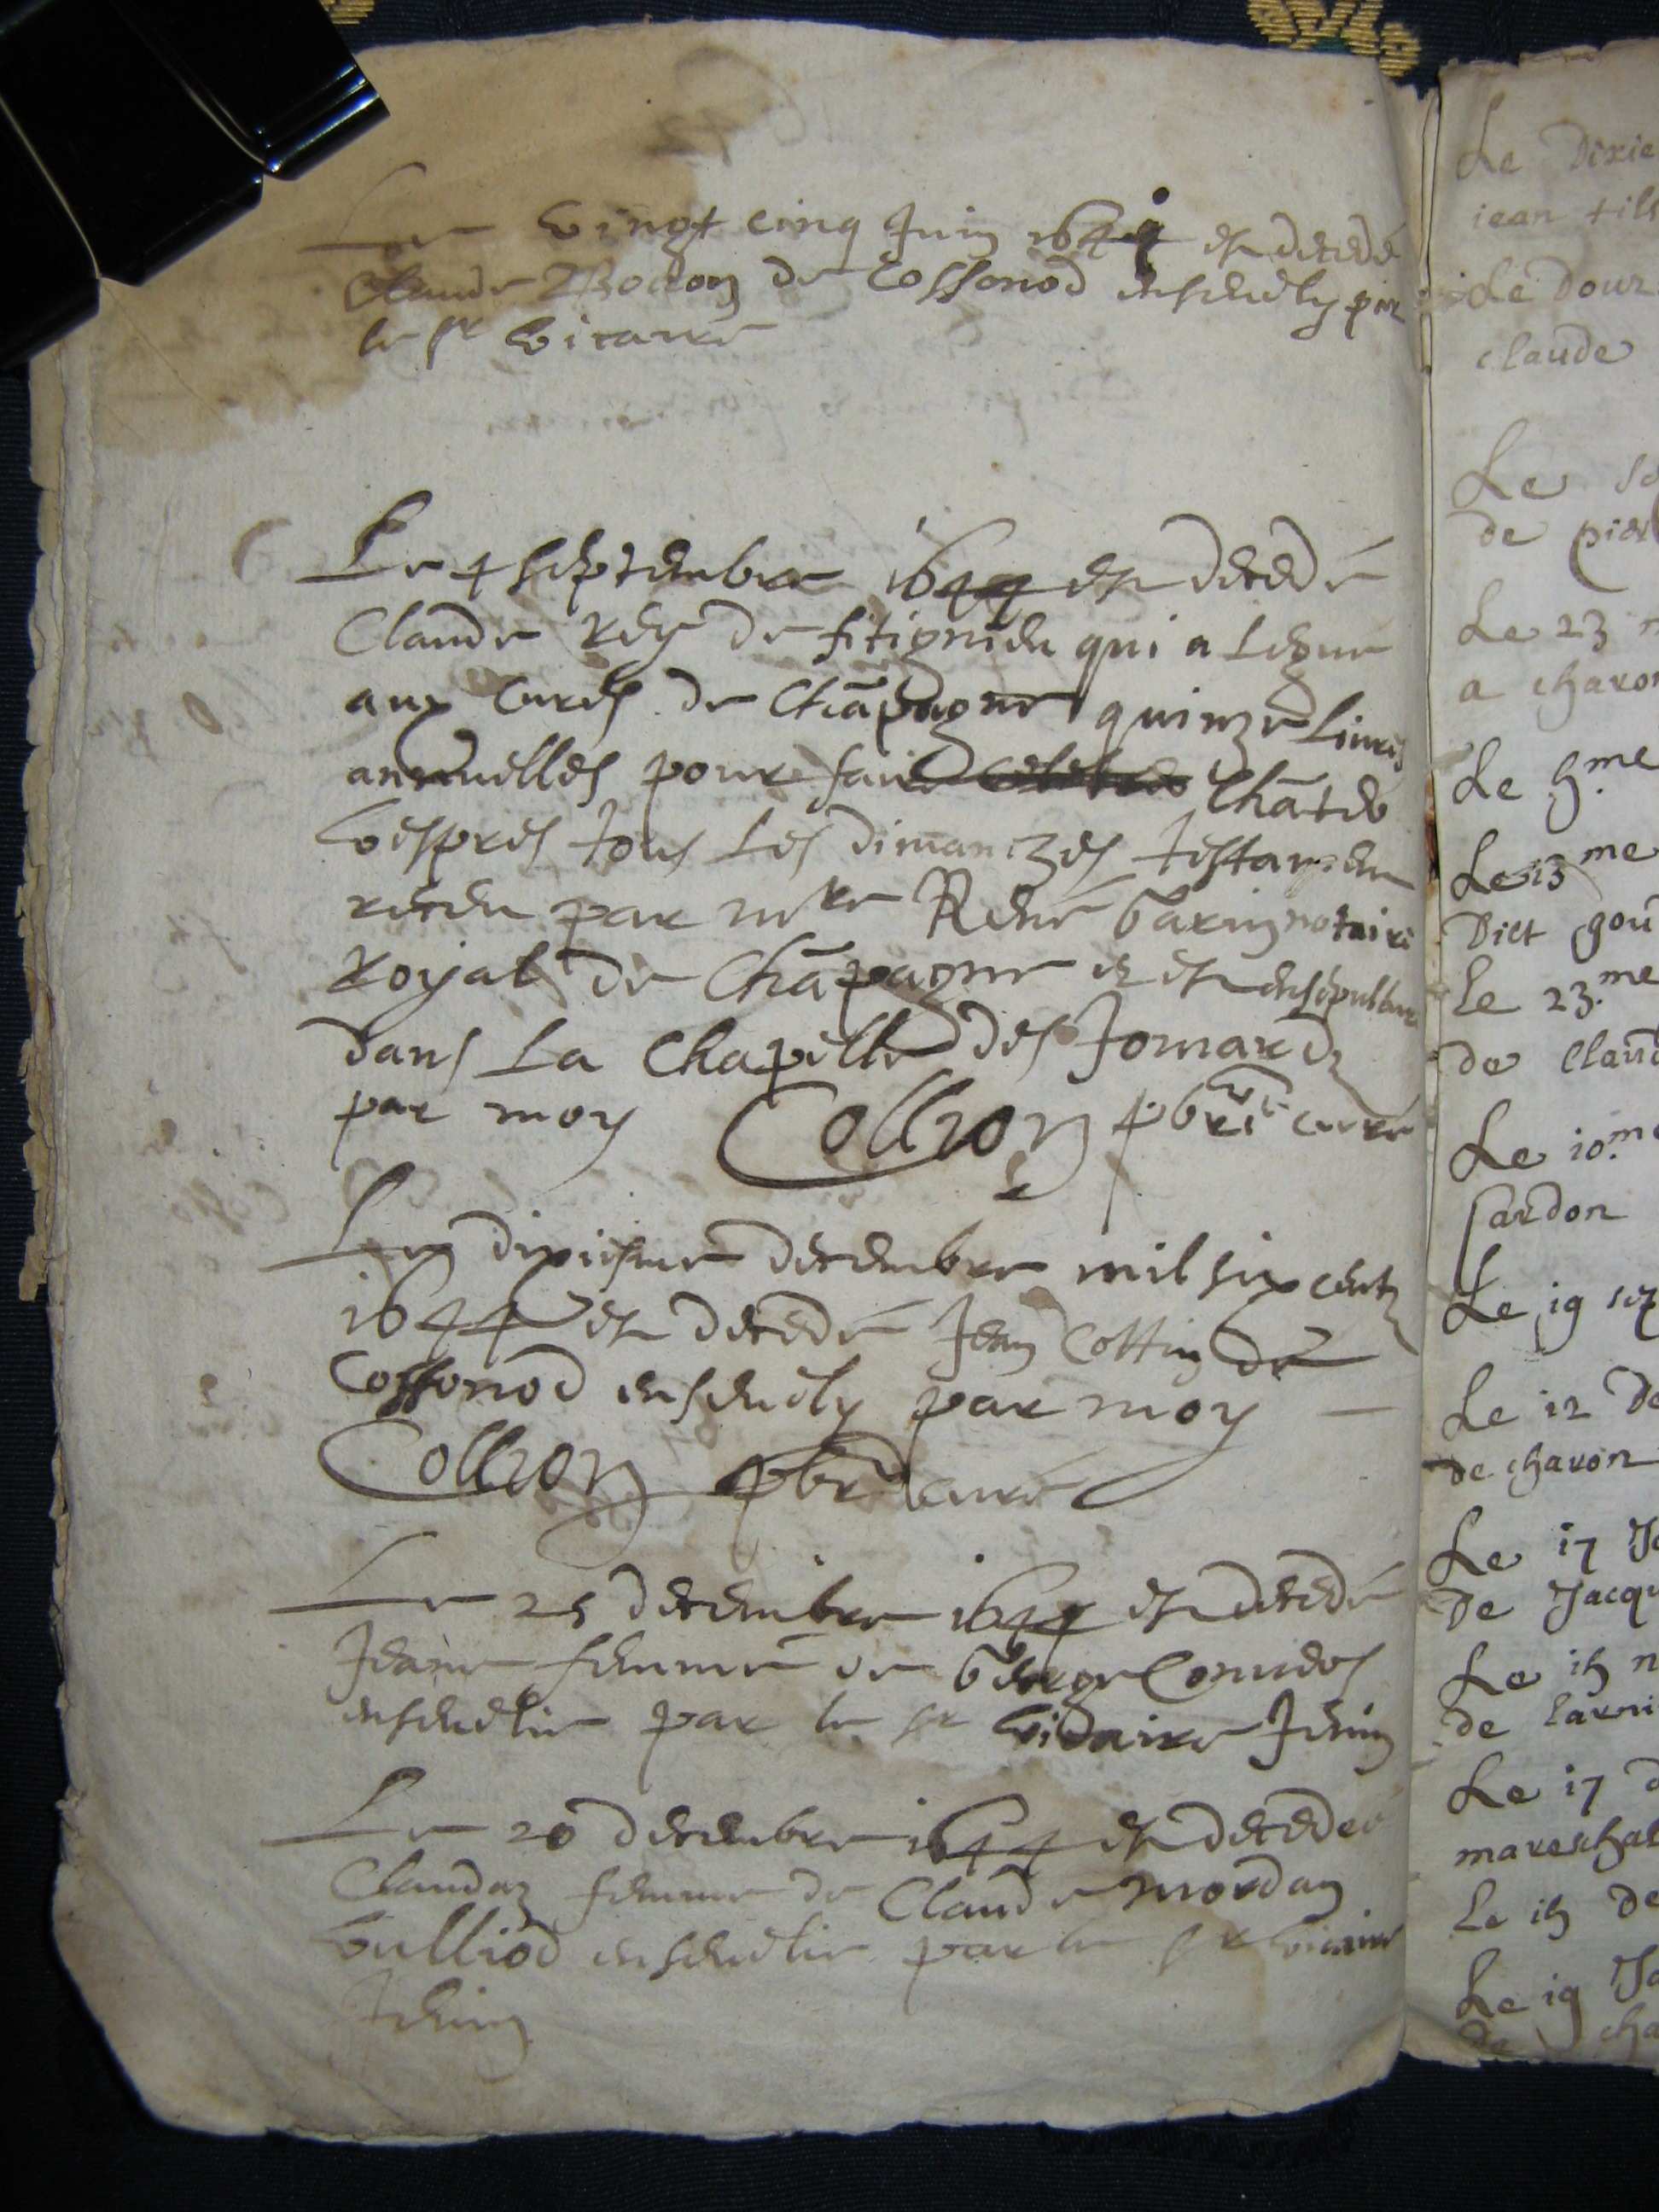 Le vingt cinq Juin 1644 est decedé
Claude de Cossonod ensevely par
le sr vicaire
Le 4 septembre 1644 est decedé
Claude Rey de fitignieu qui a legué
aux curés de Chãpagne quinze livres
annuelles pour faire celebrer chãter
vespres tous les dimanches testament
receu par mre René Garin notaire
Royal de Chãpagne et est ensepulturé
dans la Chapelle des Jomardz
par moy Colleon pbre curé
Le dixiesme decembre mil six centz
1644 est decedé Jean Cottin de
Cossonod ensevely par moy
Colleon pbre curé
Le 25 decembre 1644 est decedé
Jeane femme de George
ensevelie par le sr vicaire Jenin
Le 20 decembre 1644 est decedée
Claudaz femme de Claude mordan
vulliod ensevelie par le sr vicaire
Jenin
Le dixie
iean fils
Le douz
claude
Le
de pier
Le 23
a charon
Le 5.me
Le 13me
Dict gou
Le 23.me
de claud
Le 10.me
sardon
Le 19 sep
Le 12 de
de charon
Le 17 Ja
De Jacqu
Le 15 n
de larni
Le 17 d
mareschal
Le 15 de
Le 19 Ja
de cha